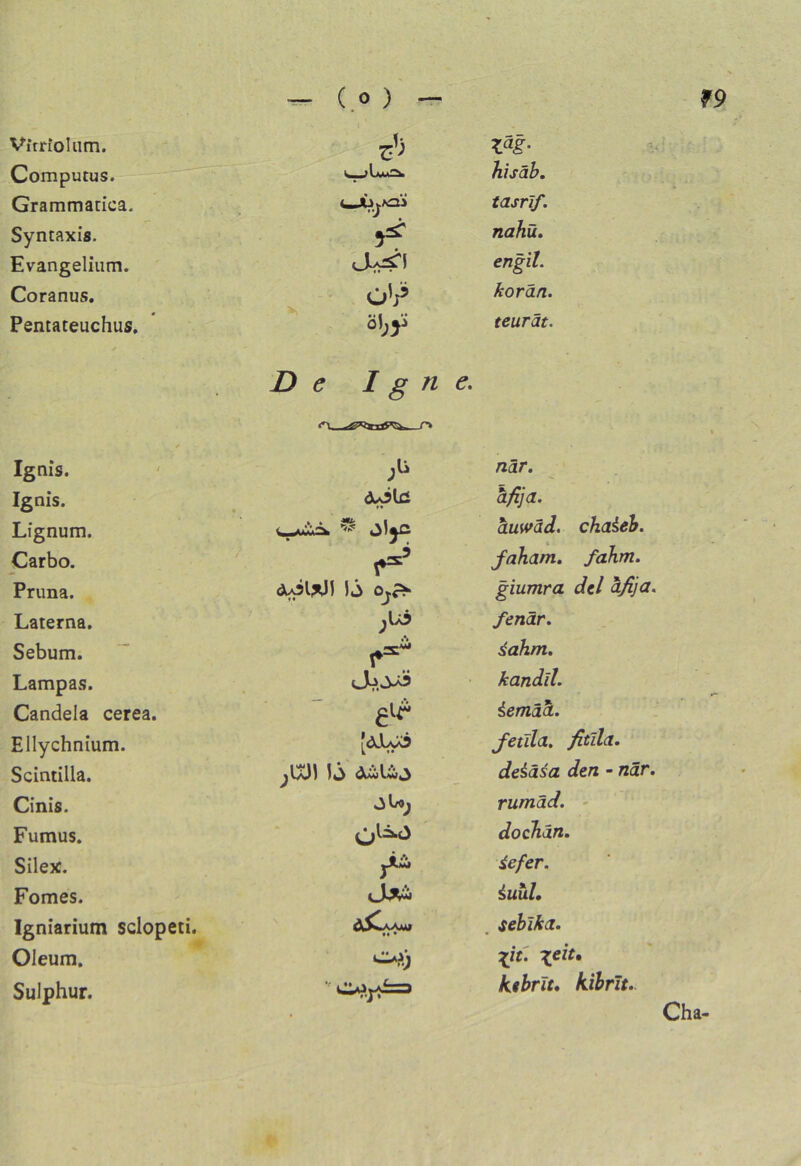 — ( o ) — 79
Vitriolum. زاج ʒāg.
Computus. حساب hisāb.
Grammatica. تصريف tasrīf.
Syntaxis. نحو nahū.
Evangelium. انجيل engīl.
Coranus. قران korān.
Pentateuchus. توراة teurāt.
De Igne.
Ignis. نار nār.
Ignis. عافيه ȧfija.
Lignum. عواد * خشب ȧuwād. chaśeb.
Carbo. فحم faham. fahm.
Pruna. جمرة دا العافيه giumra del ȧfija.
Laterna. فنار fenār.
Sebum. شحم śahm.
Lampas. قنديل kandīl.
Candela cerea. شماع śemāȧ.
Ellychnium. فتيله fetīla. fitīla.
Scintilla. دشاشه دا النار deśāśa den-nār.
Cinis. رماد rumād.
Fumus. دخان dochān.
Silex. شفر śefer.
Fomes. شعل śuu̇l.
Igniarium sclopeti. سبيكه sebīka.
Oleum. زيت ʒit. ʒeit.
Sulphur. كبريت kebrīt. kibrīt.
Cha-